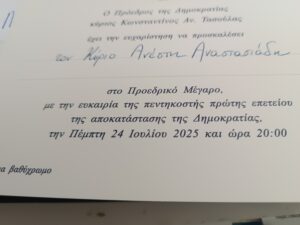 Ο Πρόεδρος της Δημοκρατίας
κύριος Κωνσταντίνος Αν. Τασούλας
έχει την ευχαρίστηση να προσκαλέσει
τον Κύριο Ανέστη Αναστασιάδη
στο Προεδρικό Μέγαρο,
με την ευκαιρία της πεντηκοστής πρώτης επετείου
της αποκατάστασης της Δημοκρατίας,
την Πέμπτη 24 Ιουλίου 2025 και ώρα 20:00
βαθύχρωμο